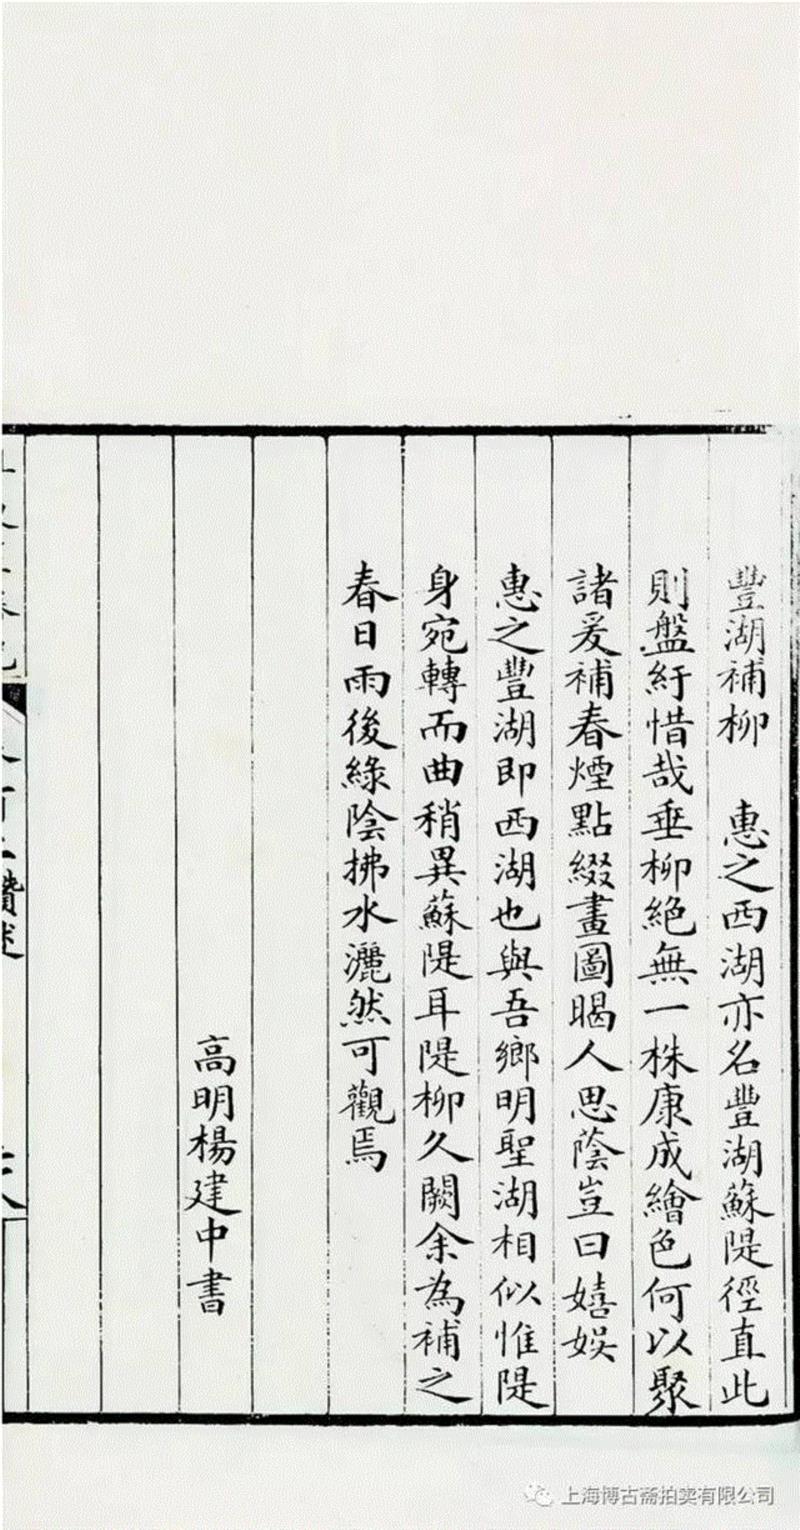 豐湖補柳　惠之西湖亦名豐湖蘇隄徑直此
則盤紆惜哉垂柳絕無一株康成繪色何以聚
諸爰補春煙點綴畫圖暍人思蔭豈曰嬉娛
惠之豐湖即西湖也與吾鄉明聖湖相似惟隄
身宛轉而曲稍異蘇隄耳隄柳久闕余為補之
春日雨後綠陰拂水灑然可觀焉
高明楊建中書
上海博古斋拍卖有限公司